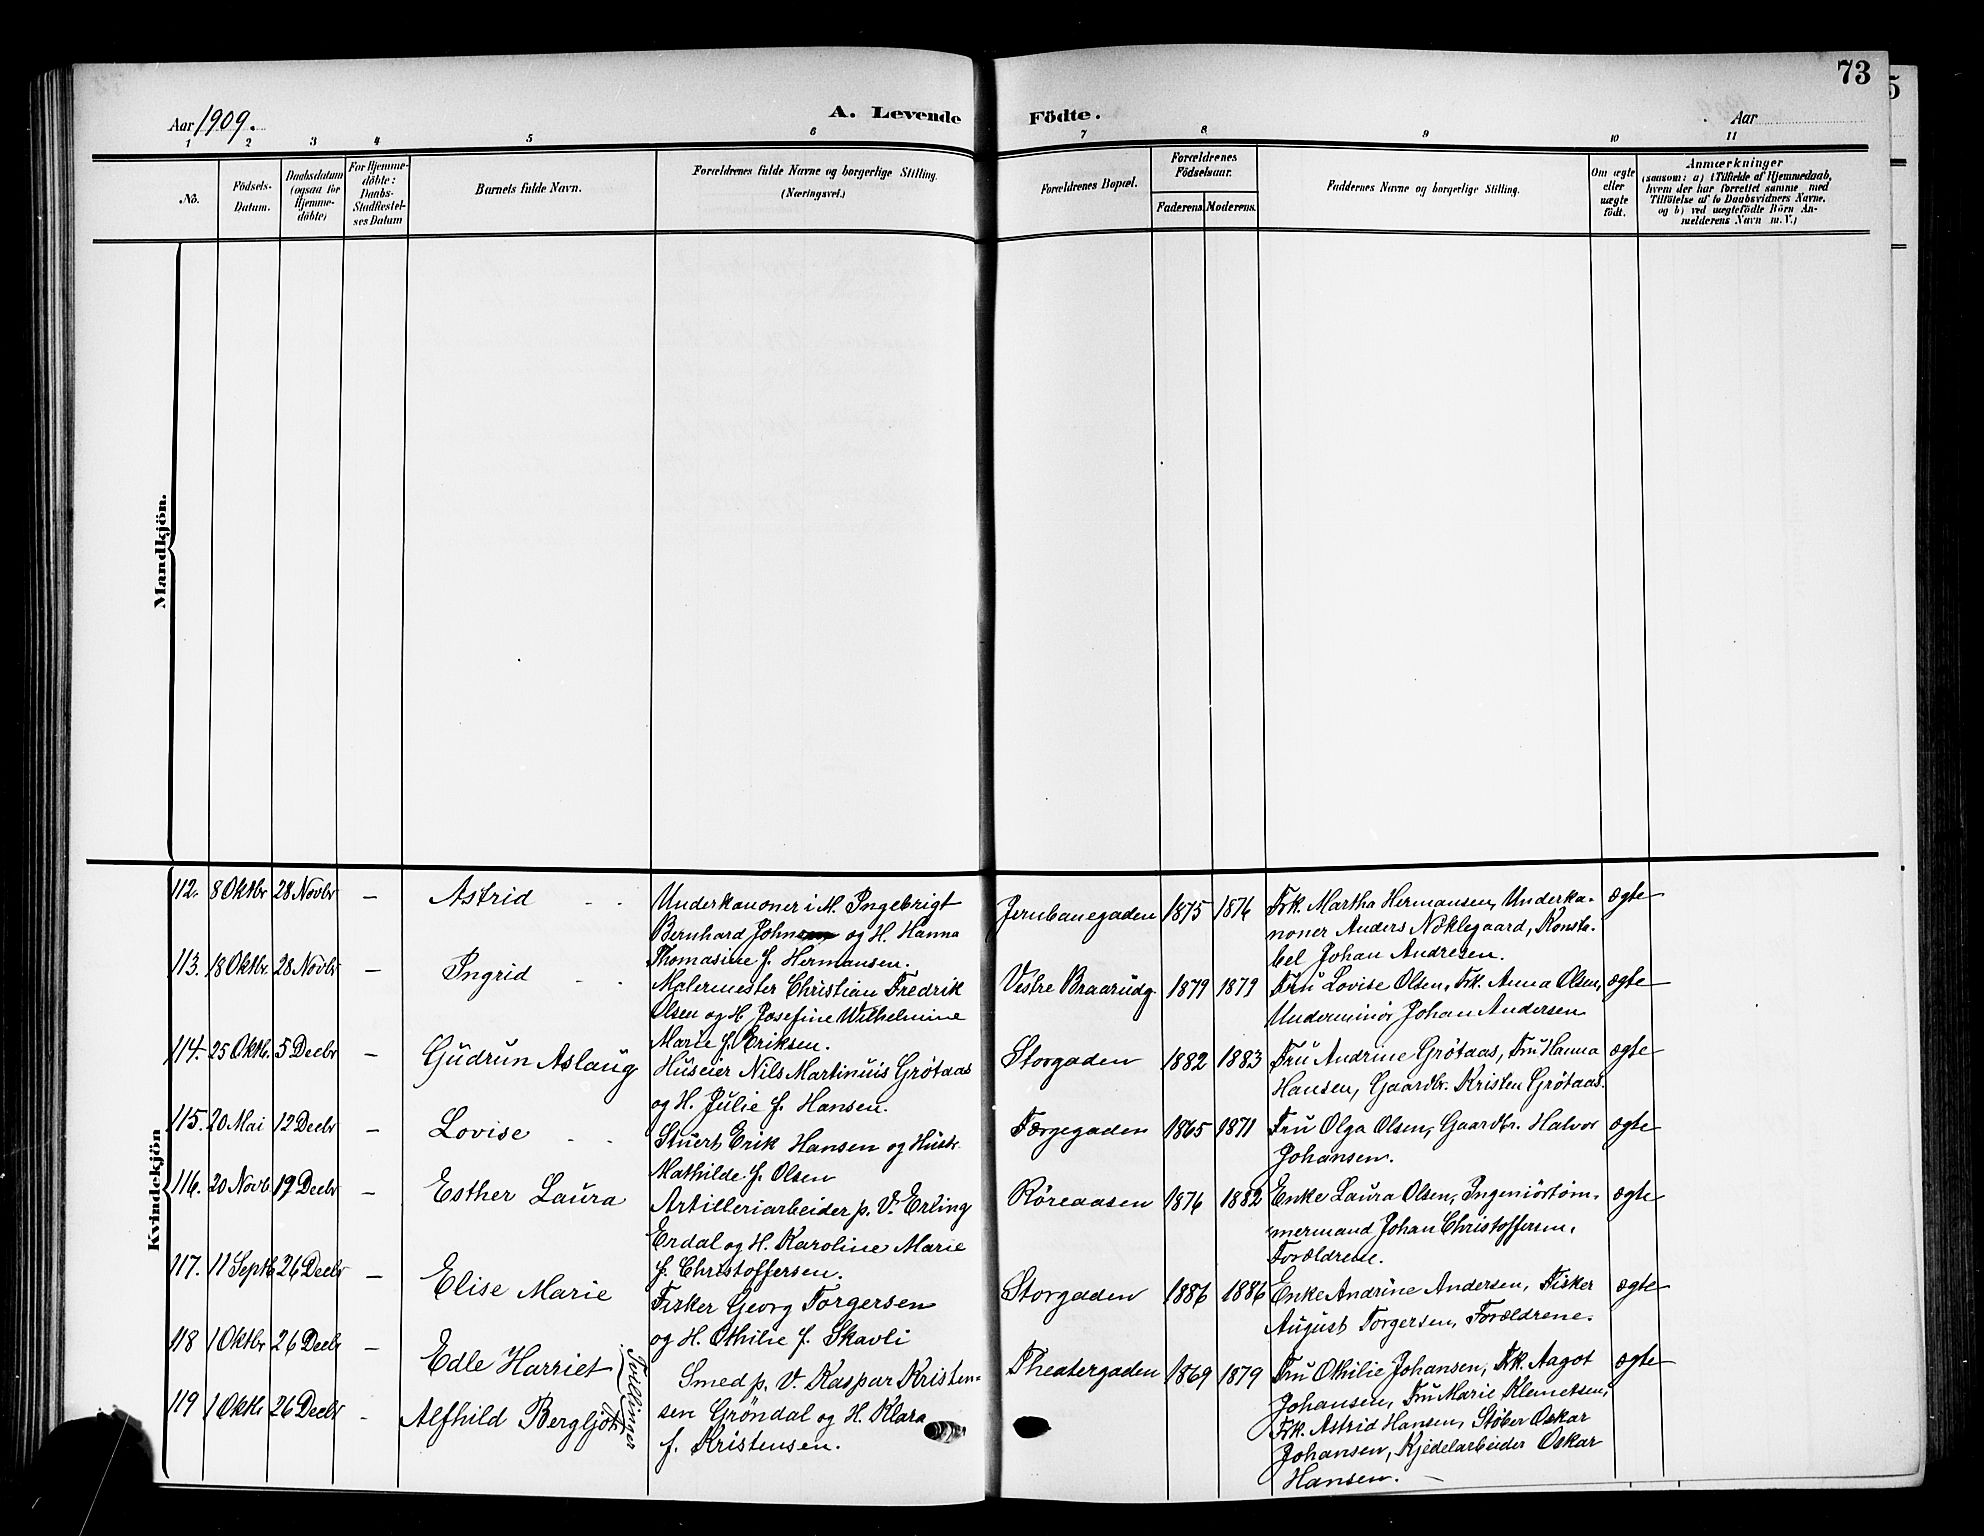 73
5
Aar 1909.
A. Levende Födte.
Aar
1 2 3 4 5 6 7 8 9 10 11
No.
Födsels-
Datum.
Daabsdatum
(ogsaa for
Hjemme-
döbte)
For Hjemme-
döbte:
Daabs-
Stadfestel-
ses Datum
Barnets fulde Navn.
Forældrenes fulde Navne og borgerlige Stilling.
(Næringsvei.)
Forældrenes Bopæl.
Forældrenes
Födselsaar.
Faderens. Moderens.
Faddernes Navne og borgerlige Stilling.
Om ægte
eller
uægte
födt.
Anmærkninger
(saasom: a) i Tilfælde af Hjemmedaab,
hvem der har forrettet samme med
Tilföielse af to Daabsvidners Navne,
og b) ved uægtefödte Börn An-
melderens Navn m.V.)
Mandkjön.
Kvindekjön
112. 8 Oktbr 28 Novbr - Astrid
Underkanoner i M. Ingebrigt
Bernhard Johnsen og H. Hanna
Thomasine f. Hermansen.
Jernbanegaden 1875 1876
Frk. Martha Hermansen, Underka-
noner Anders Nøklegaard, Konsta-
bel Johan Andresen.
ægte
113. 18 Oktbr. 28 Novbr - Ingrid
Malermester Christian Fredrik
Olsen og H. Josefine Wilhelmine
Marie f. Eriksen.
Vestre Braarudg. 1879 1879
Fru Lovise Olsen, Frk. Anna Olsen,
Underminör Johan Andersen
ægte
114. 25 Oktb. 5 Decbr - Gudrun Aslaug
Huseier Nils Martinuis Grötaas
og H. Julie f. Hansen.
Storgaden 1882 1883
Fru Andrine Grötaas, Fru Hanna
Hansen, Gaardbr. Kristen Grötaas.
ægte
115. 20 Mai 12 Decbr - Lovise
Stuert Erik Hansen og Hustr.
Mathilde f. Olsen
Færgegaden 1865 1871
Fru Olga Olsen, Gaardbr. Halvor
Johansen.
ægte
116. 20 Novb. 19 Decbr - Esther Laura
Artilleriarbeider p. V. Erling
Erdal og H. Karoline Marie
f. Christoffersen.
Røreaasen 1876 1882
Enke Laura Olsen, Ingeniörtöm-
mermand Johan Christoffersen,
Forældrene.
ægte
117. 11 Septb 26 Decbr - Elise Marie
Fisker Georg Torgersen
og H. Othilie f. Skavli
Storgaden 1886 1886
Enke Andrine Andersen, Fisker
August Torgersen, Forældrene.
ægte
118 1 Oktbr 26 Decbr Edle Harriet
119 1 Oktbr 26 Decbr - Alfhild Bergljot
Tvillinger
Smed p. V. Kaspar Kristen-
sen Gröndal og H. Klara
f. Kristensen.
Theatergaden 1869 1879
Fru Othilie Johansen, Frk. Aagot
Johansen, Fru Marie Klemetsen,
Frk. Astrid Hansen, Støber Oskar
Johansen, Kjedelarbeider Oskar
Hansen.
ægte